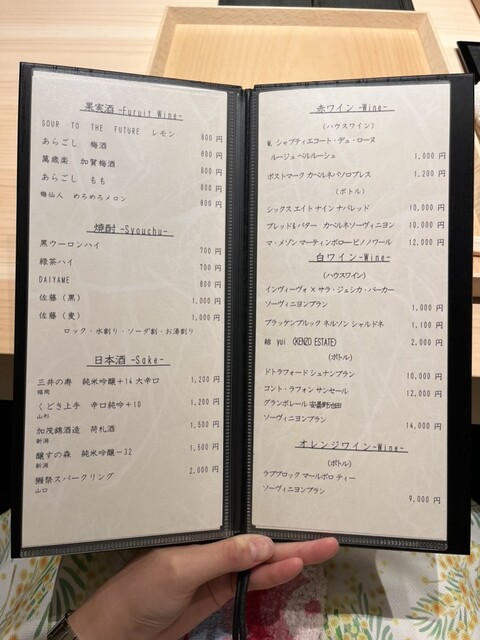 果実酒 -Furuit Wine-
SOUR TO THE FUTURE レモン 800 円
あらごし 梅酒 800 円
萬歳楽 加賀梅酒 800 円
あらごし もも 800 円
梅仙人 めろめろメロン 800 円
焼酎 -Syouchu-
黒ウーロンハイ 700 円
緑茶ハイ 700 円
DAIYAME 800 円
佐藤（黒） 1,000 円
佐藤（麦） 1,000 円
ロック・水割り・ソーダ割・お湯割り
日本酒 -Sake-
三井の寿 純米吟醸+14 大辛口 1,200 円
福岡
くどき上手 辛口純吟+10 1,200 円
山形
加茂錦酒造 荷札酒 1,500 円
新潟
醸す森 純米吟醸-32 1,500 円
新潟
獺祭スパークリング 2,000 円
山口
赤ワイン -Wine-
（ハウスワイン）
M. シャプティエコート・デュ・ローヌ
ルージュ ベルルーシュ 1,000 円
ポストマーク カベルネパソロブレス 1,200 円
（ボトル）
シックス エイト ナイン ナパレッド 10,000 円
ブレッド&バター カベルネソーヴィニヨン 10,000 円
マ・メゾン マーティンボロー ピノノワール 12,000 円
白ワイン -Wine-
（ハウスワイン）
インヴィーヴォ × サラ・ジェシカ・パーカー
ソーヴィニヨンブラン 1,000 円
ブラッケンブルック ネルソン シャルドネ 1,100 円
yui (KENZO ESTATE) 2,000 円
（ボトル）
ドトラフォード シュナンブラン 10,000 円
コント・ラフォン サンセール 12,000 円
グランポレール 安曇野池田
ソーヴィニヨンブラン 14,000 円
オレンジワイン -Wine-
（ボトル）
ラブブロック マールボロ ティー
ソーヴィニヨンブラン 9,000 円